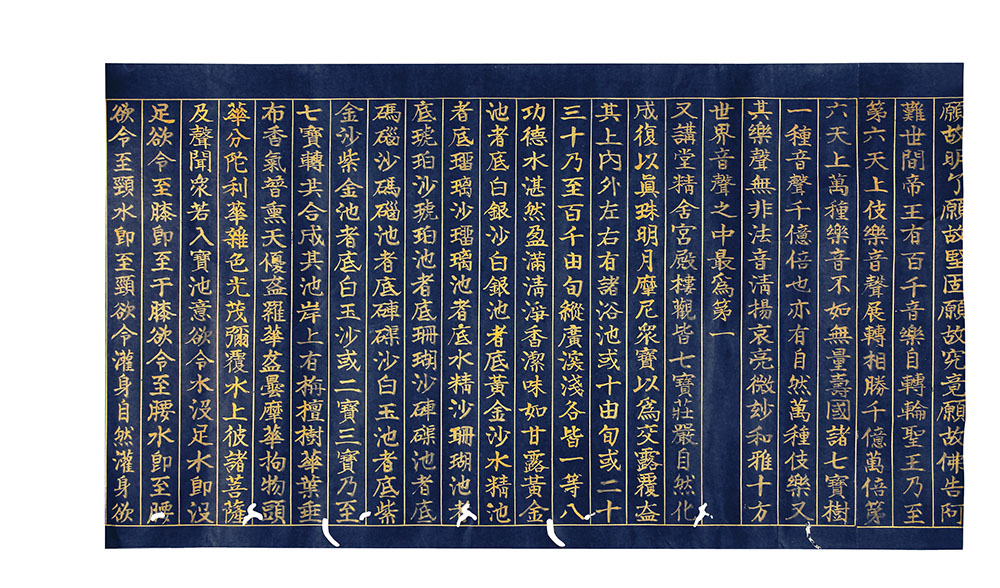 願故明了願故堅固願故究竟願故佛告阿
難世間帝王有百千音樂自轉輪聖王乃至
第六天上伎樂音聲展轉相勝千億萬倍第
六天上萬種樂音不如無量壽國諸七寶樹
一種音聲千億倍也亦有自然萬種伎樂又
其樂聲無非法音清揚哀亮微妙和雅十方
世界音聲之中最為第一
又講堂精舍宮殿樓觀皆七寶莊嚴自然化
成復以眞珠明月摩尼眾寶以為交露覆盖
其上內外左右有諸浴池或十由旬或二十
三十乃至百千由旬縱廣深淺各皆一等八
功德水湛然盈滿清淨香潔味如甘露黃金
池者底白銀沙白銀池者底黃金沙水精池
者底瑠璃沙瑠璃池者底水精沙珊瑚池者
底琥珀沙琥珀池者底珊瑚沙硨磲池者底
碼碯沙碼碯池者底硨磲沙白玉池者底紫
金沙紫金池者底白玉沙或二寶三寶乃至
七寶轉共合成其池岸上有栴檀樹華葉垂
布香氣普熏天優盋羅華盋曇摩華拘物頭
華分陀利華雜色光茂彌覆水上彼諸菩薩
及聲聞眾若入寶池意欲令水沒足水即沒
足欲令至膝即至于膝欲令至腰水即至腰
欲令至頸水即至頸欲令灌身自然灌身欲